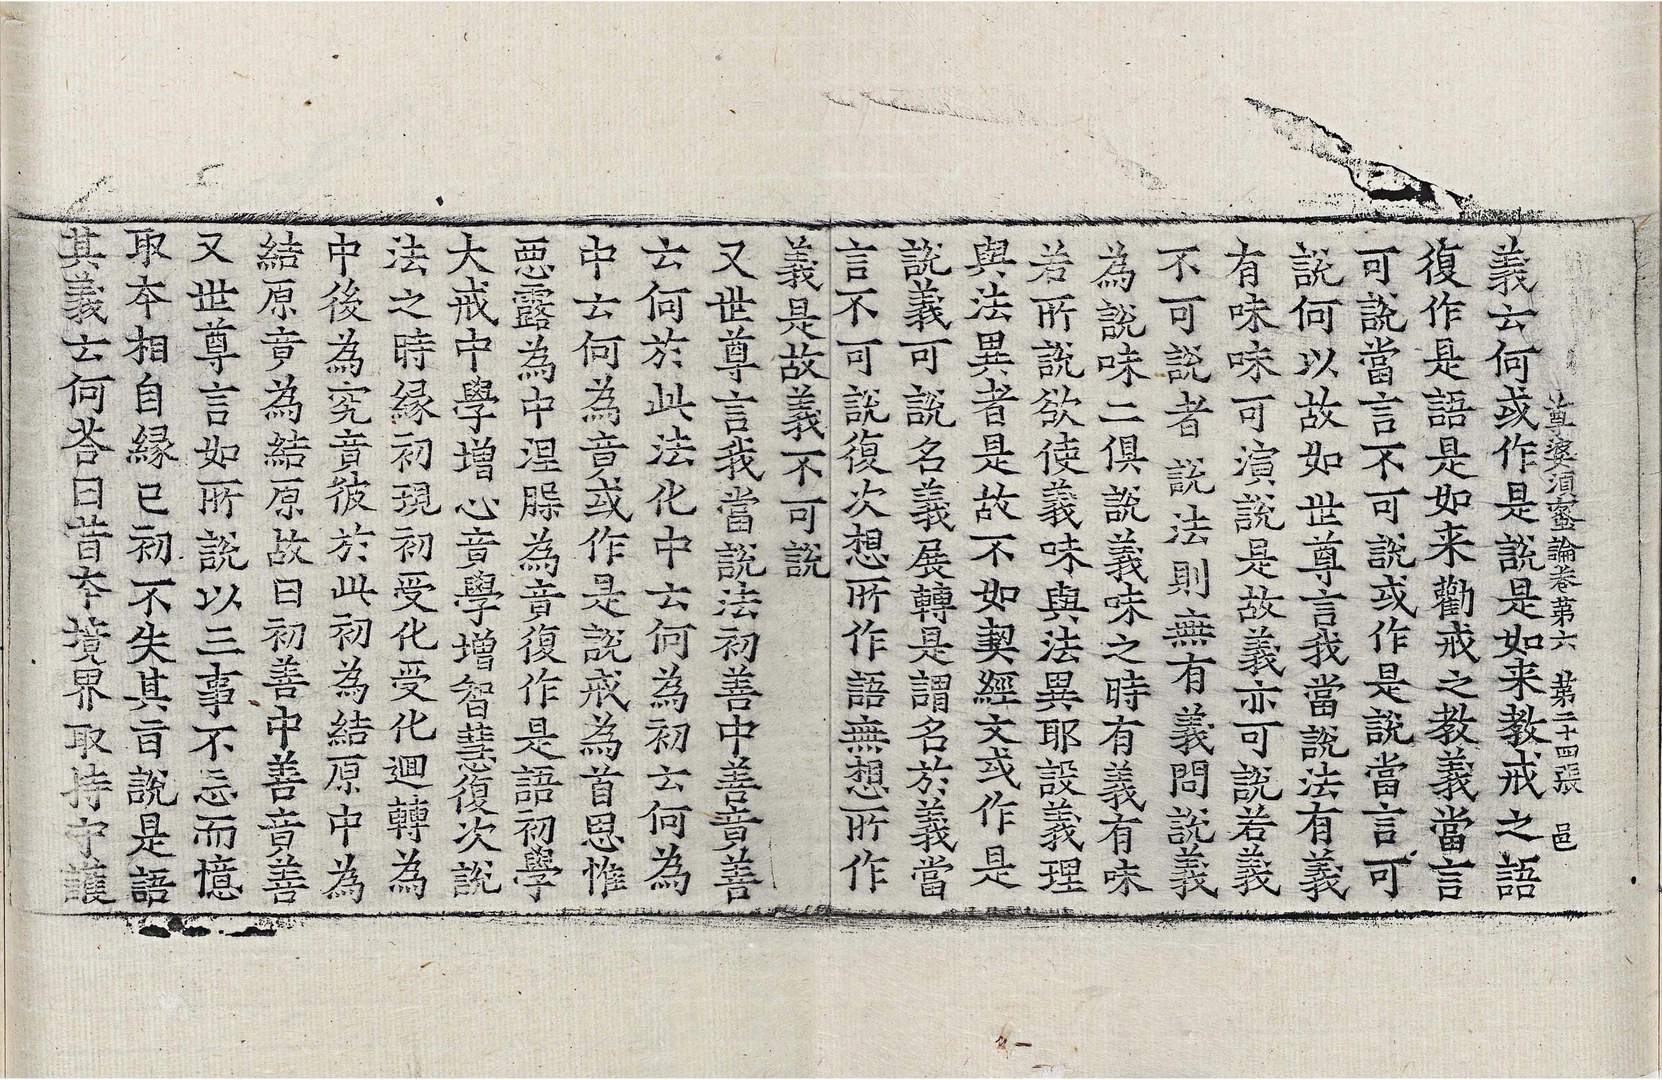 尊婆須蜜論卷第六 第二十四張 邑
義云何或作是說是如来教戒之語
復作是語是如来勸戒之教義當言
可說當言不可說或作是說當言可
說何以故如世尊言我當說法有義
有味味可演說是故義亦可說若義
不可說者說法則無有義問說義
為說味二俱說義味之時有義有味
若所說欲使義味與法異耶設義理
與法異者是故不如契經文或作是
說義可說名義展轉是謂名於義當
言不可說復次想所作語無想所作
義是故義不可說
又世尊言我當說法初善中善竟善
云何於此法化中云何為初云何為
中云何為竟或作是說戒為首思惟
惡露為中涅槃為竟復作是語初學
大戒中學增心竟學增智慧復次說
法之時縁初現初受化受化迴轉為
中後為究竟彼於此初為結原中為
結原竟為結原故曰初善中善竟善
又世尊言如所說以三事不忘而憶
取夲相自縁已初不失其言說是語
其義云何荅曰昔夲境界取持守護